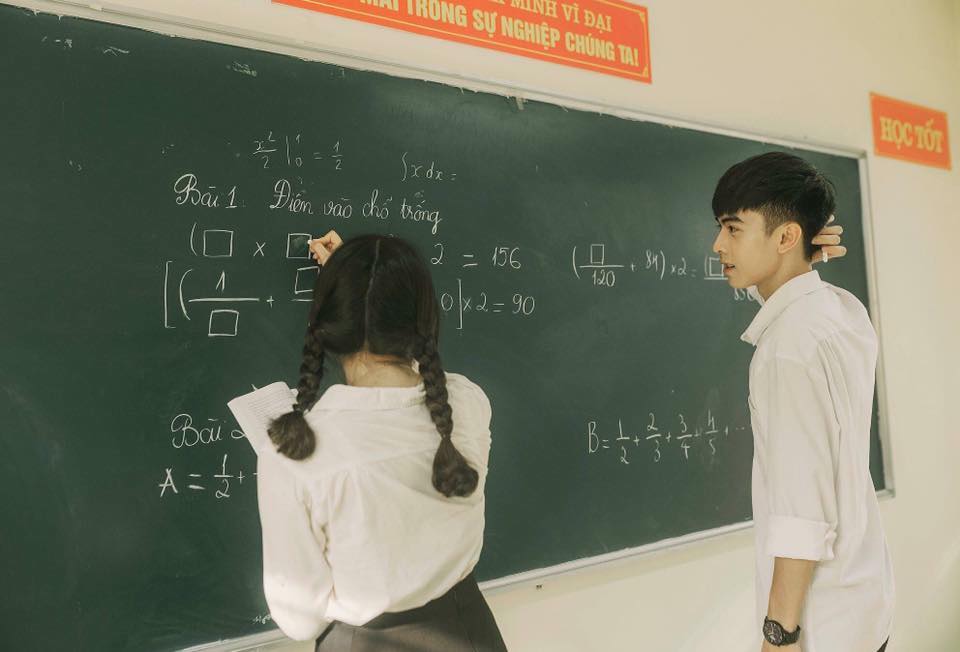 MINH VĨ ĐẠI
TRONG SỰ NGHIỆP CHÚNG TA!
HỌC TỐT
x²/2 |¹₀ = 1/2
∫x dx =
Bài 1. Điền vào chỗ trống
(□ × □ 2 = 156
[(1/□ + □ 0] × 2 = 90
(□/120 + 84) × 2 = (□
Bài
A = 1/2 +
B = 1/2 + 2/3 + 3/4 + 4/5 + ...